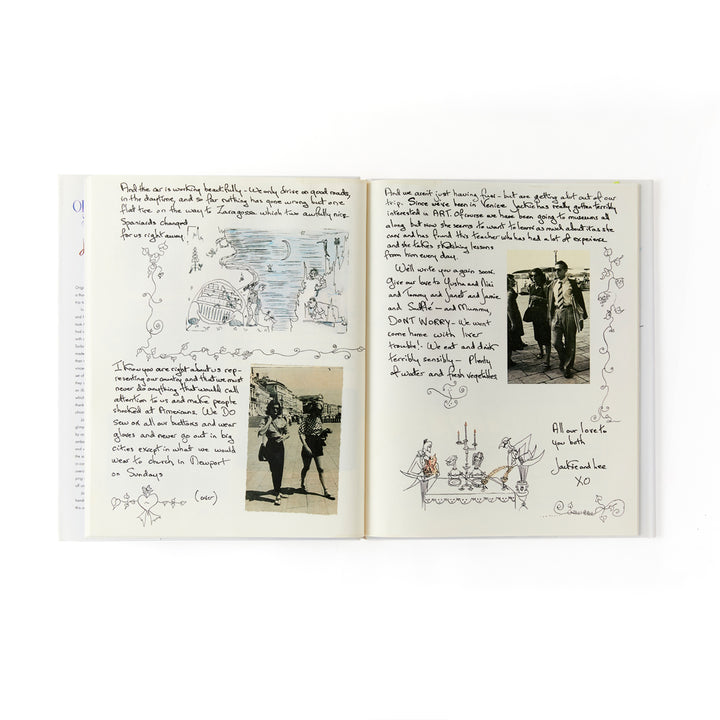 And the car is working beautifully - We only drive on good roads,
in the daytime, and so far nothing has gone wrong but one
flat tire on the way to Zaragossa which two awfully nice
Spaniards changed
for us right away
I know you are right about us rep-
resenting our country and that we must
never do anything that would call
attention to us and make people
shocked at Americans. We DO
sew on all our buttons and wear
gloves and never go out in big
cities except in what we would
wear to church in Newport
on Sundays
(over)
And we aren't just having fun - but are getting a lot out of our
trip. Since we've been in Venice Jackie has really gotten terribly
interested in ART. Of course we have been going to museums all
along but now she seems to want to learn as much about it as she
can and has found this teacher who has had a lot of experience
and she takes sketching lessons
from him every day.
We'll write you again soon.
Give our love to Yusha and Nini
and Tommy and Janet and Jamie
and Soufflé - and Mummy,
DONT WORRY - We wont
come home with liver
trouble! We eat and drink
terribly sensibly - Plenty
of water and fresh vegetables
All our love to
you both
Jackie and Lee
XO